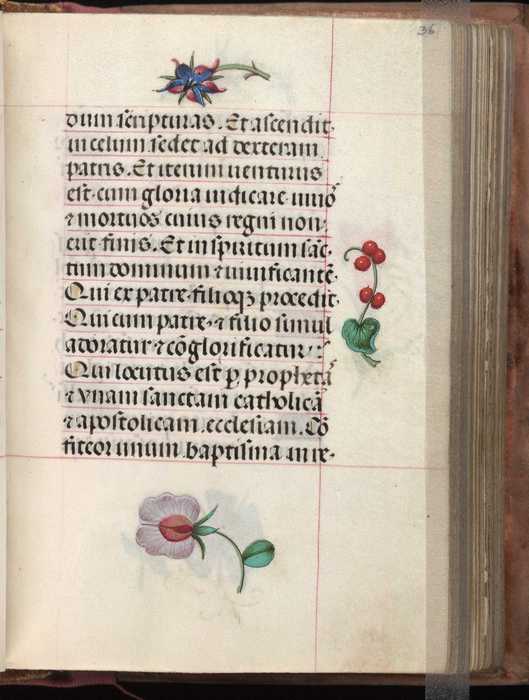 36
dum scripturas. Et ascendit
in celum sedet ad dexteram
patris. Et iterum uenturus
est cum gloria iudicare uiuo᷒
⁊ mortuos cuius regni non
erit finis. Et in spiritum sāc
tum dominum ⁊ uiuificantē.
Qui ex patre filioqꝫ procedit.
Qui cum patre ⁊ filio simul
adoratur ⁊ cōglorificatur :
Qui locutus est ꝑ prophetā
⁊ vnam sanctam catholicā
⁊ apostolicam ecclesiam. Cō
fiteor unum baptisma in re